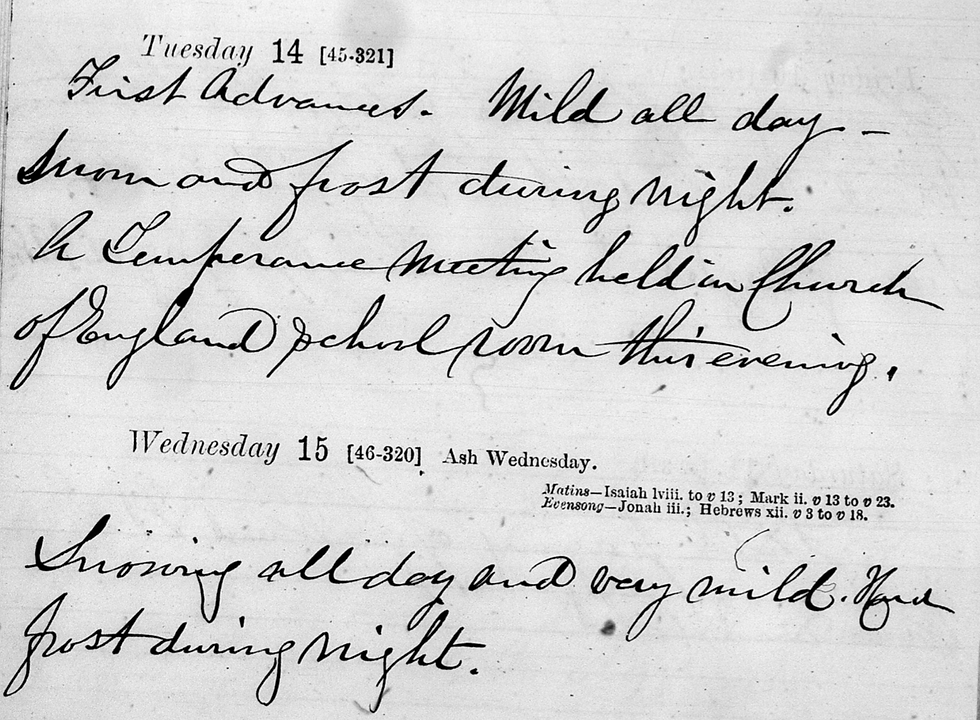 Tuesday 14 [45-321]
First Advances. Mild all day –
Snow and frost during night.
A Temperance Meeting held in Church
of England School room this evening.
Wednesday 15 [46-320] Ash Wednesday.
Matins—Isaiah lviii. to v 13; Mark ii. v 13 to v 23.
Evensong—Jonah iii.; Hebrews xii. v 3 to v 18.
Snowing all day and very mild. Hard
frost during night.